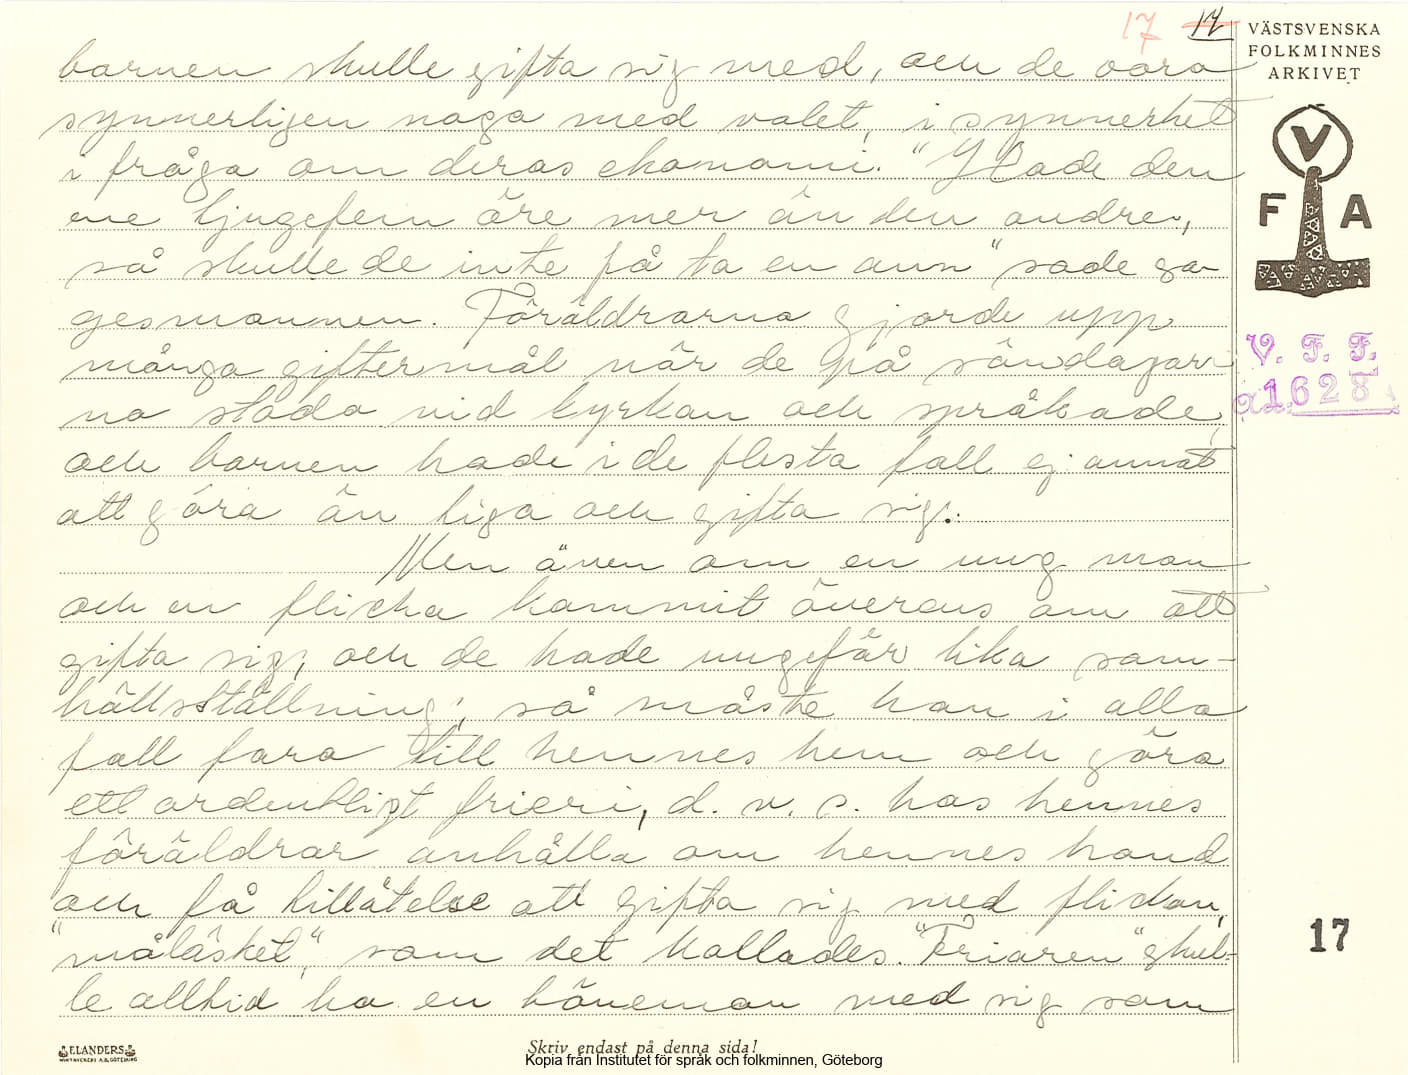 17 17
VÄSTSVENSKA
FOLKMINNES
ARKIVET
V
F A
V. F. F.
1628
barnen skulle gifta sig med, och de voro
synnerligen noga med valet, i synnerhet
i fråga om deras ekonomi. "Hade den
ene tjugefem öre mer än den andre,
så skulle de inte få ta en ann" sade sa-
gesmannen. Föräldrarna gjorde upp
många giftermål när de på söndagar-
na stodo vid kyrkan och språkade,
och barnen hade i de flesta fall ej annat
att göra än tiga och gifta sig.
Men även om en ung man
och en flicka kommit överens om att
gifta sig, och de hade ungefär lika sam-
hällsställning, så måste han i alla
fall fara till hennes hem och göra
ett ordentligt frieri, d. v. s. hos hennes
föräldrar anhålla om hennes hand
och få tillåtelse att gifta sig med flickan,
"måläsket", som det kallades. "Friaren" skul-
le alltid ha en böneman med sig som
17
ELANDERS
Skriv endast på denna sida!
Kopia från Institutet för språk och folkminnen, Göteborg